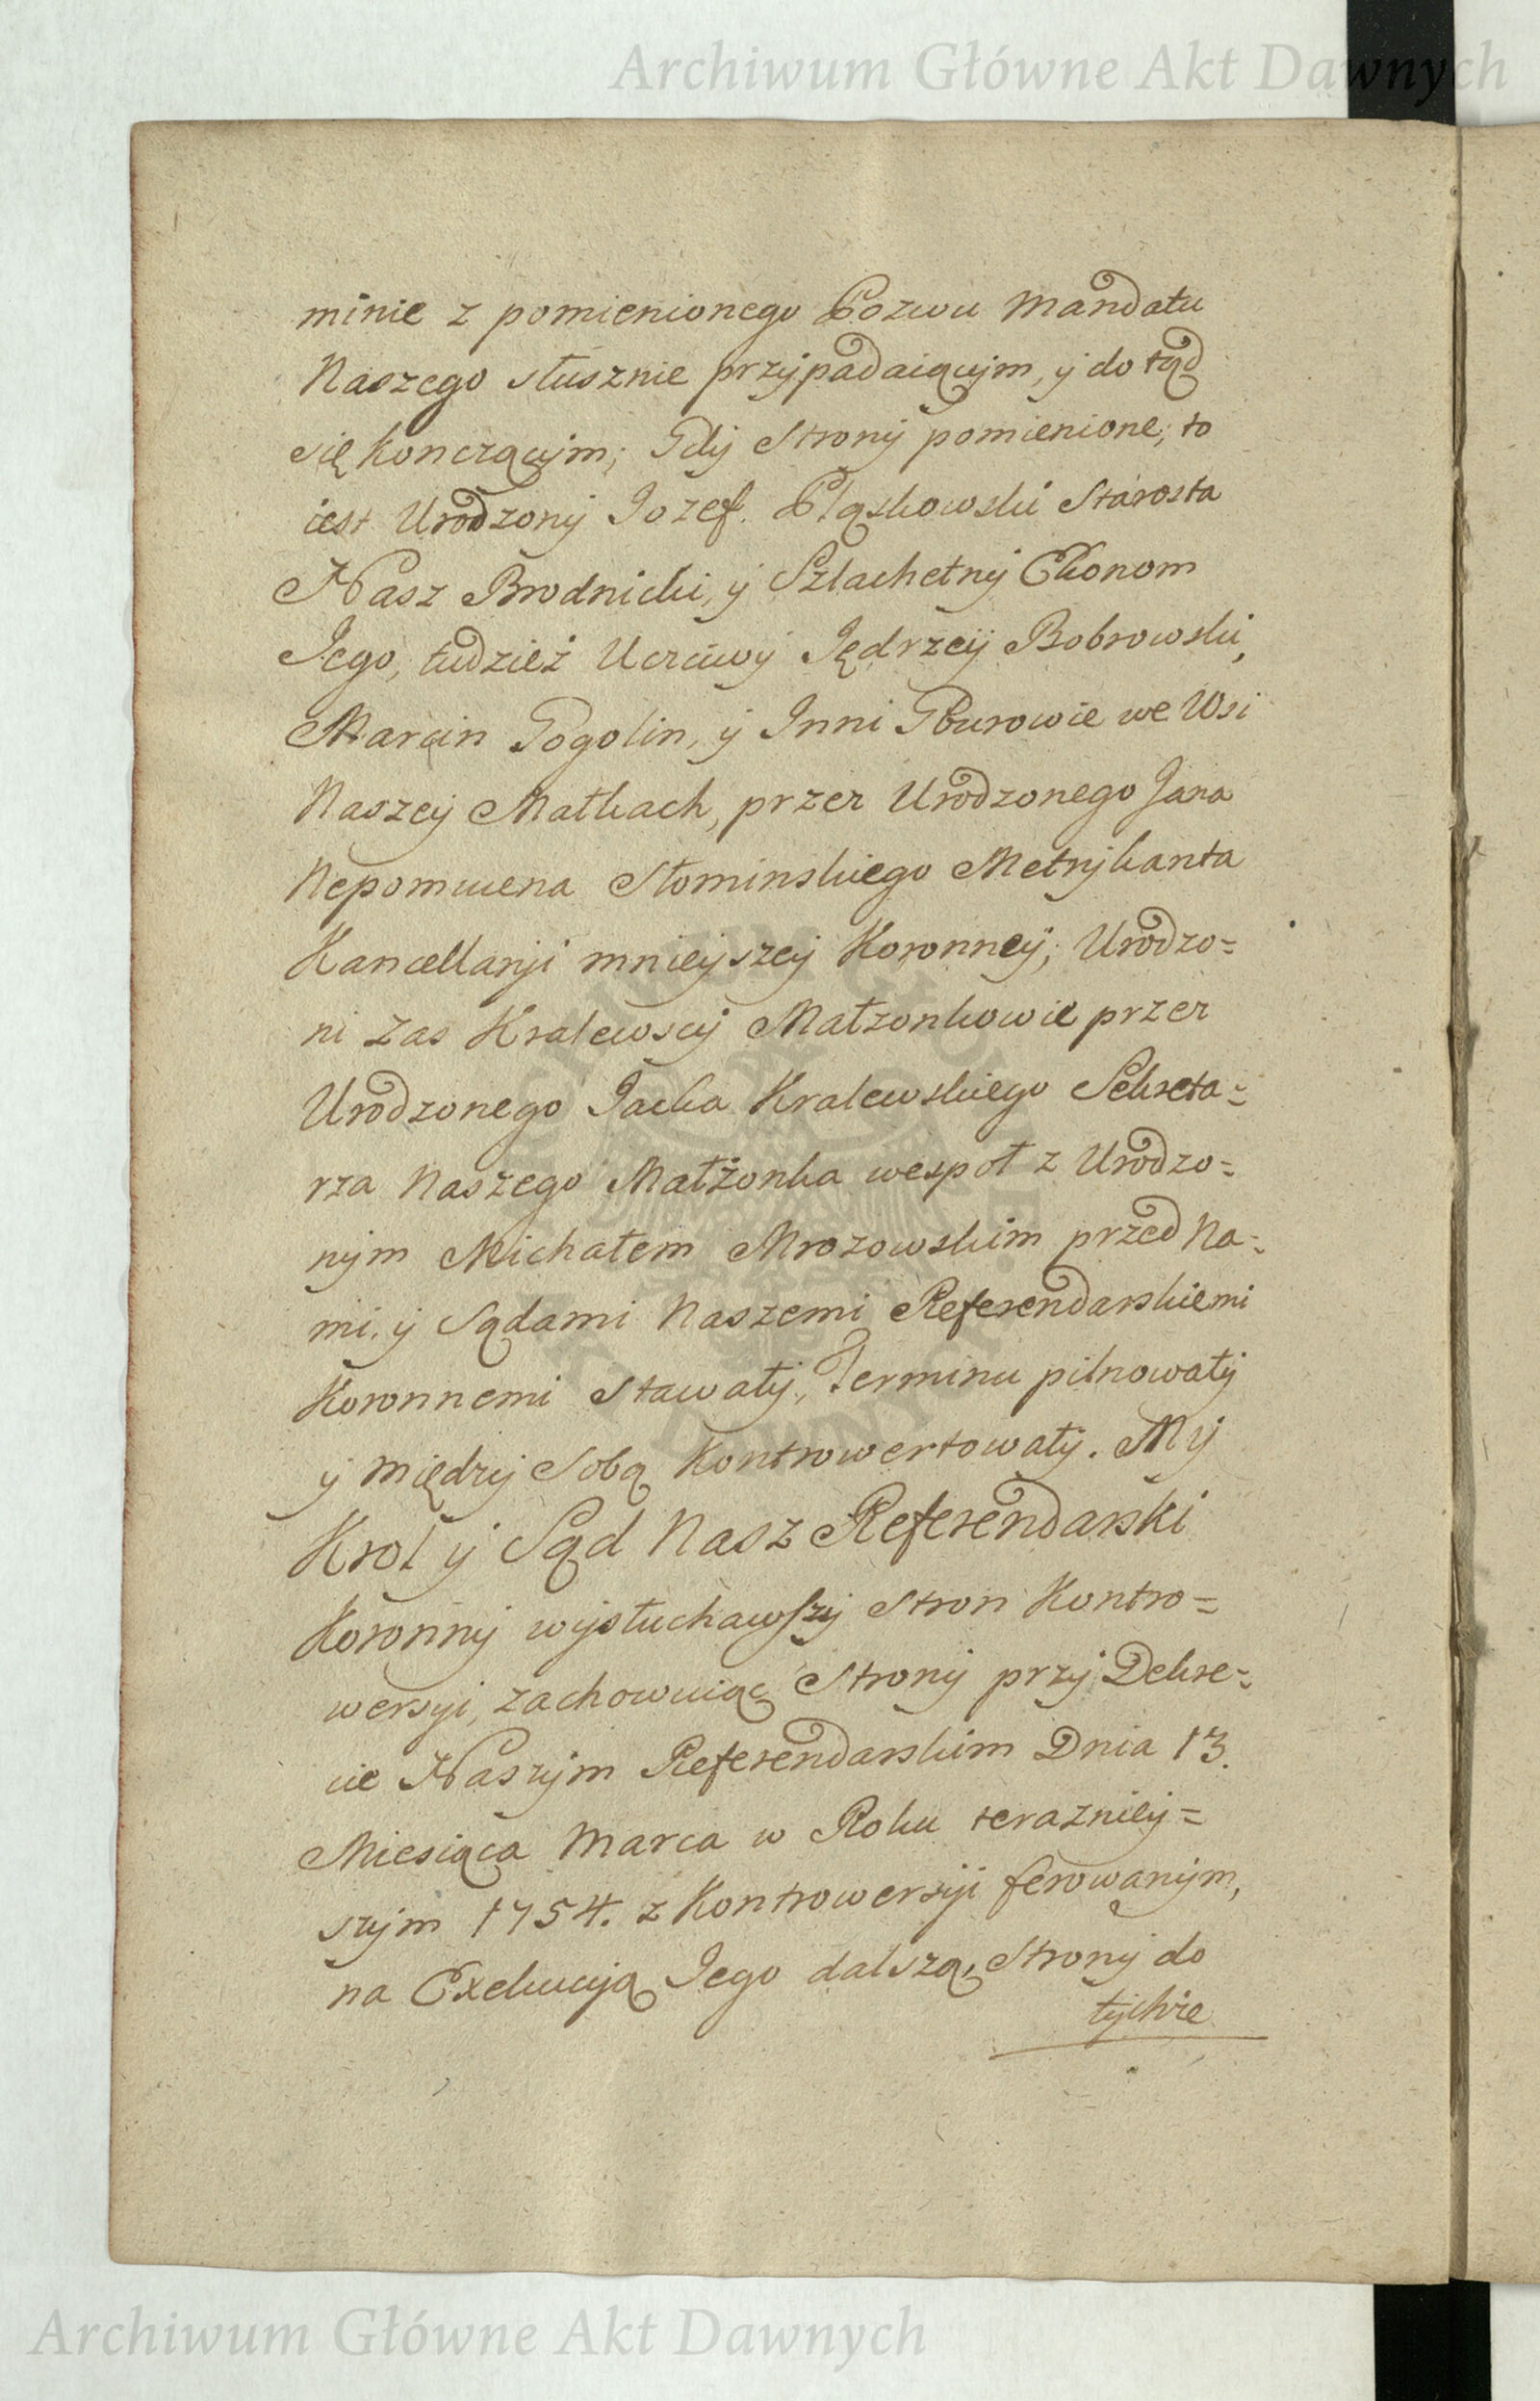 Archiwum Główne Akt Dawnych
minie z pomienionego Pozwu Mandatu
Naszego słusznie przypadaiącym, y do tąd
się konczącym; Gdy Strony pomienione; to
iest Urodzony Jozef Pląskowski Starosta
Nasz Brodnicki, y Szlachetny Ekonom
Jego, tudzież Uczciwy Jędrzey Bobrowski,
Marcin Gogolin, y Inni Gburowie we Wsi
Naszey Małkach, przez Urodzonego Jana
Nepomucena Słominskiego Metrykanta
Kancellaryi mnieyszey Koronney; Urodzo=
ni zas Kralewscy Małzonkowie przez
Urodzonego Jacka Kralewskiego Sekreta=
rza Naszego Małżonka wespoł z Urodzo=
nym Michałem Mrozowskim przed Na=
mi, y Sądami Naszemi Referendarskiemi
Koronnemi stawały, Terminu pilnowały
y między Sobą Kontrowertowały. My
Krol y Sąd Nasz Referendarski
Koronny wysłuchawszy Stron Kontro=
wersyi, zachowuiąc Strony przy Dekre=
cie Naszym Referendarskim Dnia 13.
Miesiąca Marca w Roku teraznieÿ=
szym 1754. z Kontrowersyi ferowanym,
na Exekucyą Jego dalszą, Strony do
tychże
Archiwum Główne Akt Dawnych